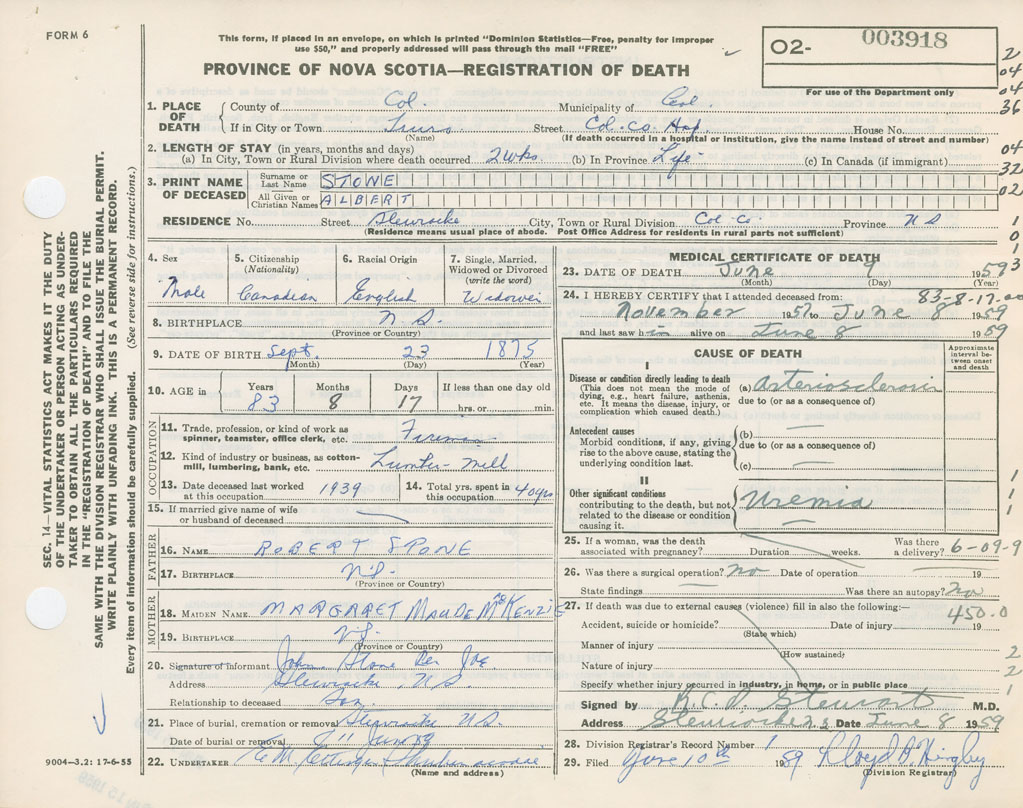 FORM 6
This form, if placed in an envelope, on which is printed "Dominion Statistics—Free, penalty for improper
use $50," and properly addressed will pass through the mail "FREE"
PROVINCE OF NOVA SCOTIA—REGISTRATION OF DEATH
O2- 003918
For use of the Department only
2
04
04
36
04
32
02
1
0
1
3
1. PLACE OF DEATH { County of Col. Municipality of Col
If in City or Town Truro Street Col. Co. Hosp. House No.
(Name) (If death occurred in a hospital or institution, give the name instead of street and number)
2. LENGTH OF STAY (in years, months and days)
(a) In City, Town or Rural Division where death occurred 2 wks. (b) In Province Life (c) In Canada (if immigrant)
3. PRINT NAME OF DECEASED { Surname or Last Name STONE
All Given or Christian Names ALBERT
RESIDENCE No. Street Stewiacke City, Town or Rural Division Col. Co. Province N S
(Residence means usual place of abode. Post Office Address for residents in rural parts not sufficient)
4. Sex Male
5. Citizenship (Nationality) Canadian
6. Racial Origin English
7. Single, Married, Widowed or Divorced (write the word) Widower
8. BIRTHPLACE N S.
(Province or Country)
9. DATE OF BIRTH Sept. 23 1875
(Month) (Day) (Year)
10. AGE in { Years 83 Months 8 Days 17 If less than one day old hrs. or min.
OCCUPATION
11. Trade, profession, or kind of work as spinner, teamster, office clerk, etc. Fireman
12. Kind of industry or business, as cotton-mill, lumbering, bank, etc. Lumber Mill
13. Date deceased last worked at this occupation 1939
14. Total yrs. spent in this occupation 40 yrs
15. If married give name of wife or husband of deceased —
FATHER
16. NAME ROBERT STONE
17. BIRTHPLACE N.S.
(Province or Country)
MOTHER
18. MAIDEN NAME MARGARET MAUDE McKENZIE
19. BIRTHPLACE N.S.
(Province or Country)
20. Signature of informant John Stone Per Joe
Address Stewiacke, N.S.
Relationship to deceased Son
21. Place of burial, cremation or removal Stewiacke N S
Date of burial or removal 11 June 59
22. UNDERTAKER
(Name and address)
MEDICAL CERTIFICATE OF DEATH
23. DATE OF DEATH June 9 1959
(Month) (Day) (Year)
83-8-17-00
24. I HEREBY CERTIFY that I attended deceased from:
November 1957 to June 8 1959
and last saw him alive on June 8 1959
CAUSE OF DEATH
Approximate interval between onset and death
I
Disease or condition directly leading to death
(This does not mean the mode of dying, e.g., heart failure, asthenia, etc. It means the disease, injury, or complication which caused death.)
(a) Arteriosclerosis
due to (or as a consequence of)
Antecedent causes
Morbid conditions, if any, giving rise to the above cause, stating the underlying condition last.
(b) —
due to (or as a consequence of)
(c) —
II
Other significant conditions
contributing to the death, but not related to the disease or condition causing it.
Uremia
—
1
1
1
25. If a woman, was the death associated with pregnancy? Duration weeks. Was there a delivery?
6-09-9
26. Was there a surgical operation? no Date of operation 19
State findings Was there an autopsy? no
27. If death was due to external causes (violence) fill in also the following:—
450.0
Accident, suicide or homicide? Date of injury 19
(State which)
Manner of injury
(How sustained)
Nature of injury
Specify whether injury occurred in industry, in home, or in public place
2
2
1
Signed by R. C. D. Stewart M.D.
Address Stewiacke N.S. Date June 8 1959
28. Division Registrar's Record Number 1
29. Filed June 10th 1959 Lloyd
(Division Registrar)
SEC. 14—VITAL STATISTICS ACT MAKES IT THE DUTY
OF THE UNDERTAKER OR PERSON ACTING AS UNDER-
TAKER TO OBTAIN ALL THE PARTICULARS REQUIRED
IN THE "REGISTRATION OF DEATH" AND TO FILE THE
SAME WITH THE DIVISION REGISTRAR WHO SHALL ISSUE THE BURIAL PERMIT.
WRITE PLAINLY WITH UNFADING INK. THIS IS A PERMANENT RECORD.
Every item of information should be carefully supplied. (See reverse side for instructions.)
9004—3.2: 17-6-55